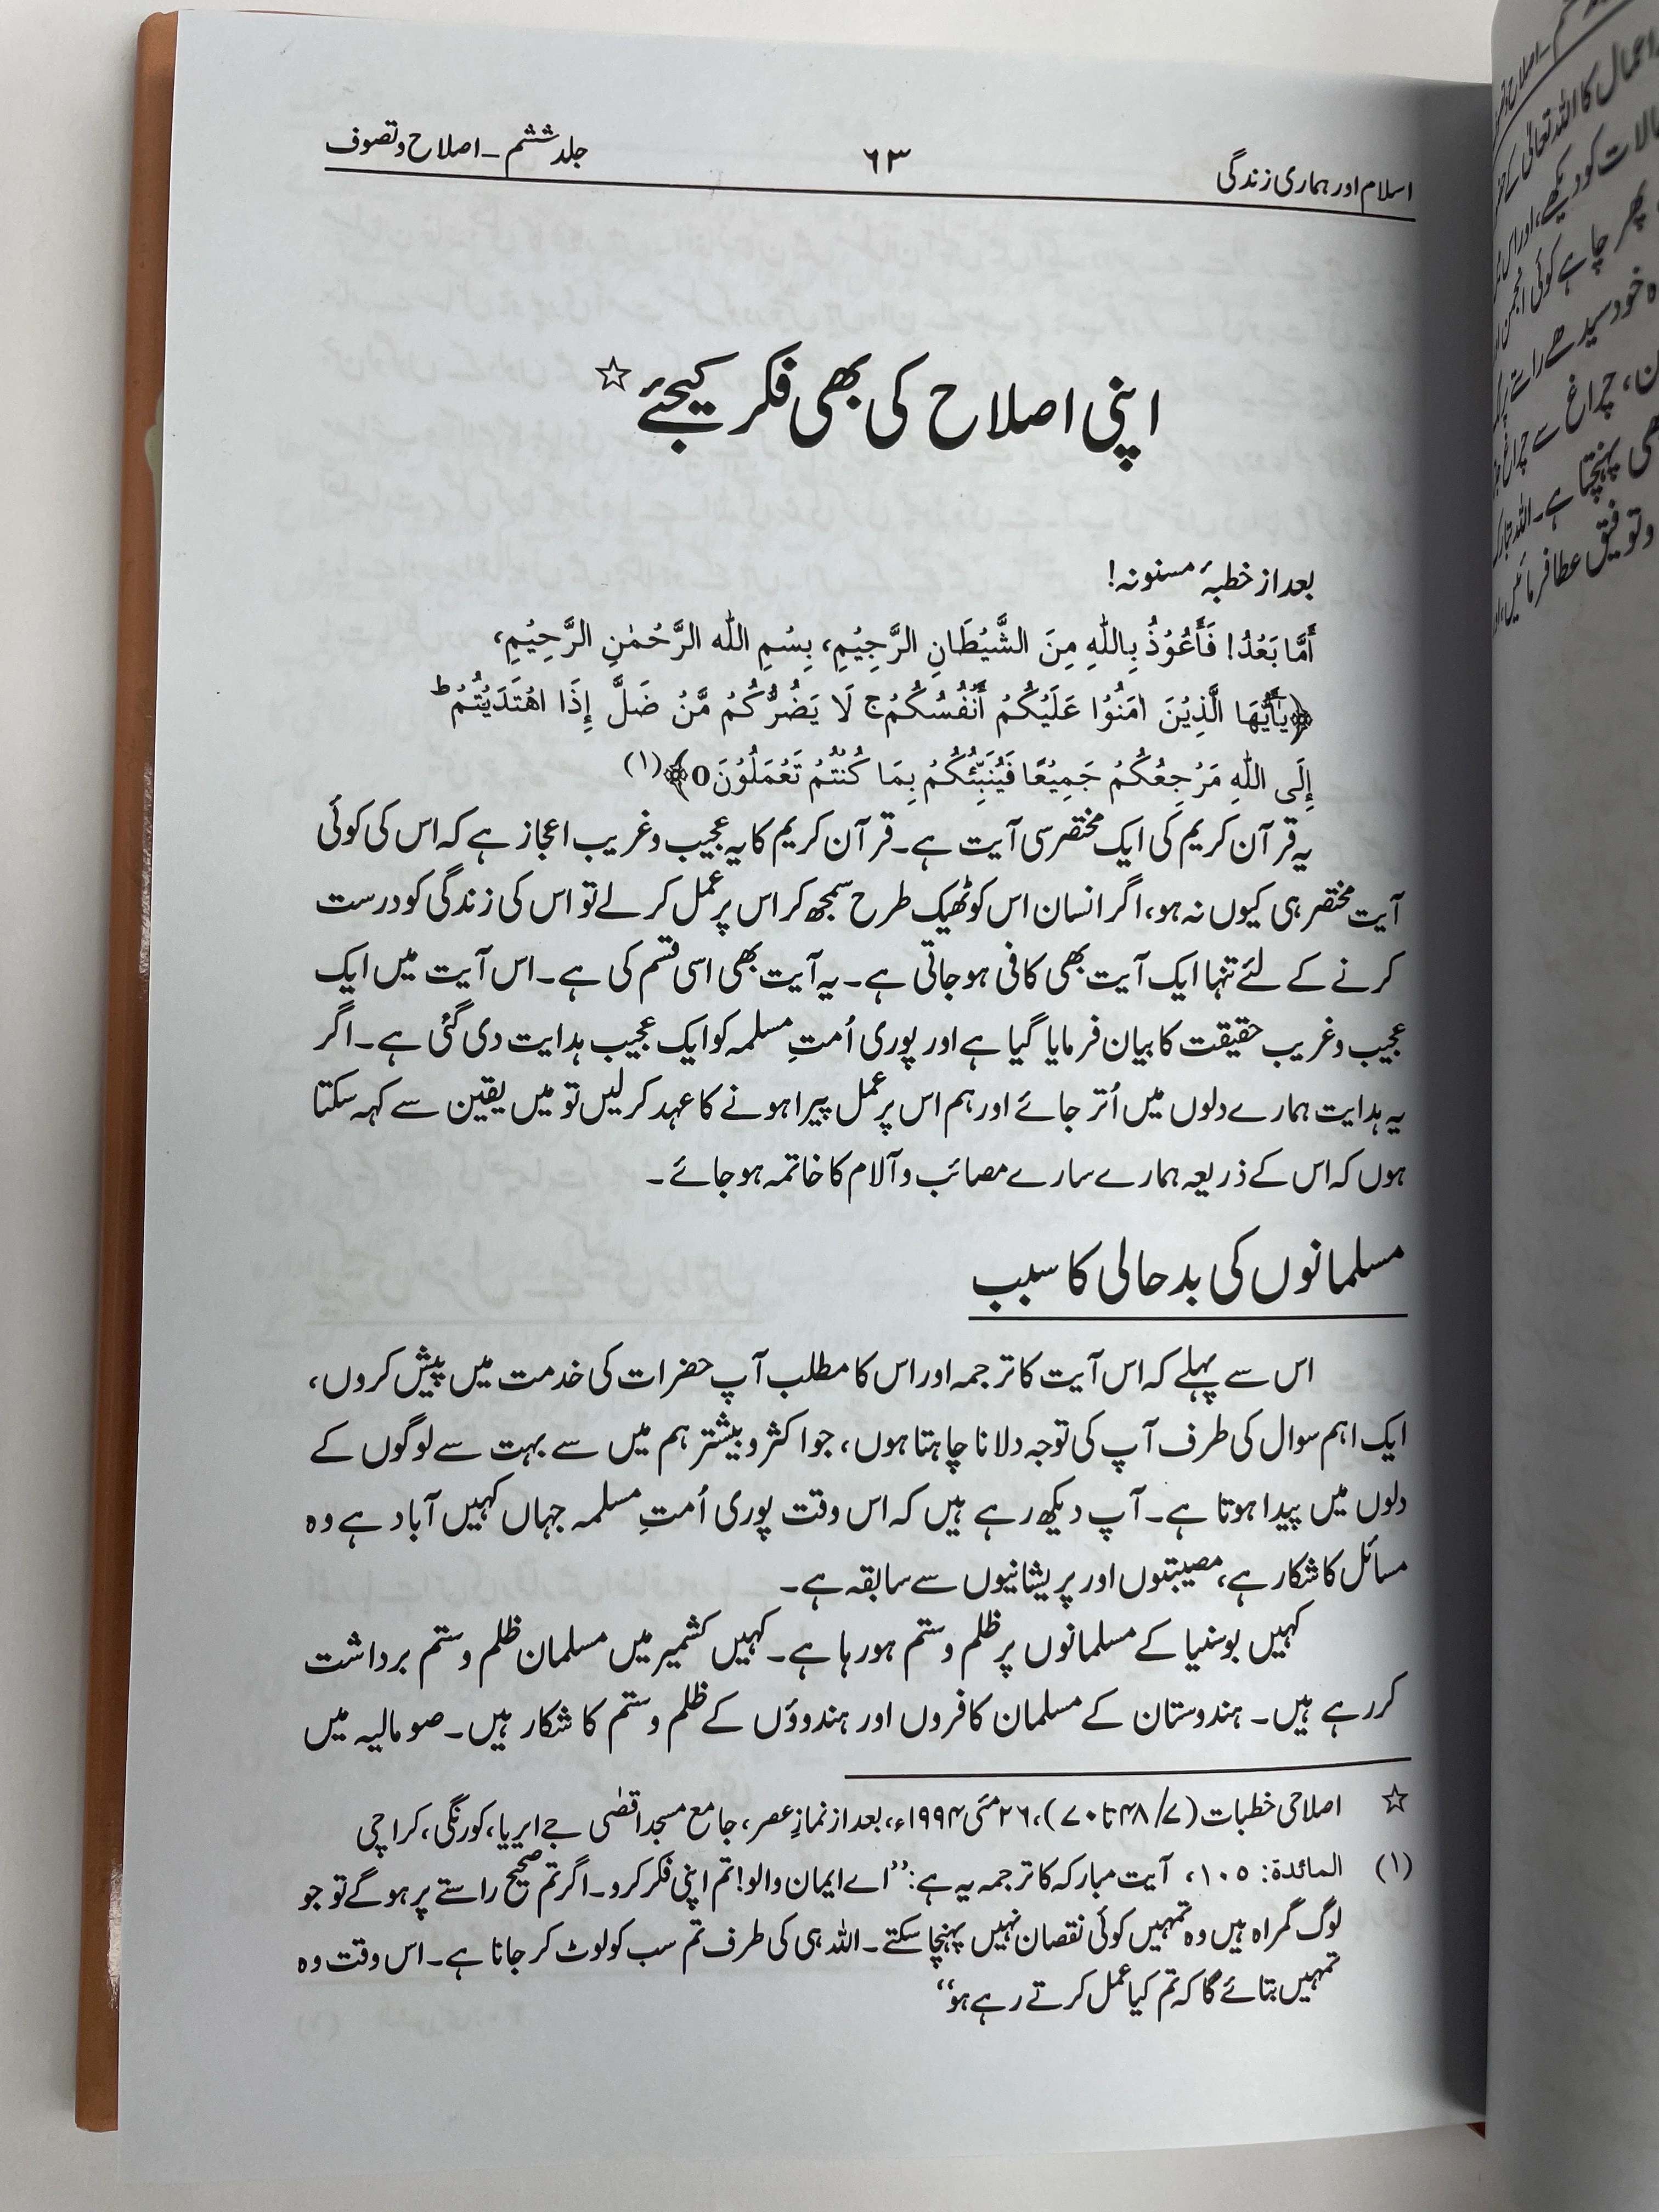 اسلام اور ہماری زندگی ۶۳ جلد ششم ۔ اصلاح و تصوف
اپنی اصلاح کی بھی فکر کیجئے ☆
بعد از خطبۂ مسنونہ!
أَمَّا بَعْدُ! فَأَعُوْذُ بِاللّٰهِ مِنَ الشَّيْطَانِ الرَّجِيْمِ، بِسْمِ اللّٰه الرَّحْمٰنِ الرَّحِيْمِ،
﴿يٰٓأَيُّهَا الَّذِيْنَ اٰمَنُوْا عَلَيْكُمْ أَنْفُسَكُمْ ج لَا يَضُرُّكُمْ مَّنْ ضَلَّ إِذَا اهْتَدَيْتُمْ ط
إِلَى اللّٰهِ مَرْجِعُكُمْ جَمِيْعًا فَيُنَبِّئُكُمْ بِمَا كُنْتُمْ تَعْمَلُوْنَ0﴾ (۱)
یہ قرآن کریم کی ایک مختصر سی آیت ہے۔ قرآن کریم کا یہ عجیب و غریب اعجاز ہے کہ اس کی کوئی
آیت مختصر ہی کیوں نہ ہو، اگر انسان اس کو ٹھیک طرح سمجھ کر اس پر عمل کر لے تو اس کی زندگی کو درست
کرنے کے لئے تنہا ایک آیت بھی کافی ہو جاتی ہے۔ یہ آیت بھی اسی قسم کی ہے۔ اس آیت میں ایک
عجیب و غریب حقیقت کا بیان فرمایا گیا ہے اور پوری اُمتِ مسلمہ کو ایک عجیب ہدایت دی گئی ہے۔ اگر
یہ ہدایت ہمارے دلوں میں اُتر جائے اور ہم اس پر عمل پیرا ہونے کا عہد کر لیں تو میں یقین سے کہہ سکتا
ہوں کہ اس کے ذریعہ ہمارے سارے مصائب و آلام کا خاتمہ ہو جائے۔
مسلمانوں کی بدحالی کا سبب
اس سے پہلے کہ اس آیت کا ترجمہ اور اس کا مطلب آپ حضرات کی خدمت میں پیش کروں،
ایک اہم سوال کی طرف آپ کی توجہ دلانا چاہتا ہوں، جو اکثر و بیشتر ہم میں سے بہت سے لوگوں کے
دلوں میں پیدا ہوتا ہے۔ آپ دیکھ رہے ہیں کہ اس وقت پوری اُمتِ مسلمہ جہاں کہیں آباد ہے وہ
مسائل کا شکار ہے، مصیبتوں اور پریشانیوں سے سابقہ ہے۔
کہیں بوسنیا کے مسلمانوں پر ظلم و ستم ہو رہا ہے۔ کہیں کشمیر میں مسلمان ظلم و ستم برداشت
کر رہے ہیں۔ ہندوستان کے مسلمان کافروں اور ہندوؤں کے ظلم و ستم کا شکار ہیں۔ صومالیہ میں
☆ اصلاحی خطبات (۷/۴۸ تا ۷۰)، ۲۶ مئی ۱۹۹۴ء، بعد از نمازِ عصر، جامع مسجد اقصٰی جے ایریا، کورنگی، کراچی
(۱) المائدة: ۱۰۵، آیت مبارکہ کا ترجمہ یہ ہے: ”اے ایمان والو! تم اپنی فکر کرو۔ اگر تم صحیح راستے پر ہو گے تو جو
لوگ گمراہ ہیں وہ تمہیں کوئی نقصان نہیں پہنچا سکتے۔ اللہ ہی کی طرف تم سب کو لوٹ کر جانا ہے۔ اس وقت وہ
تمہیں بتائے گا کہ تم کیا عمل کرتے رہے ہو“
اعمال کا اللہ تعالیٰ کے
حالات کو دیکھے، اور اس
پھر چاہے کوئی انجمن
خود سیدھے راستے پر
چراغ سے چراغ
پہنچتا ہے۔ اللہ تبارک
و توفیق عطا فرمائیں،